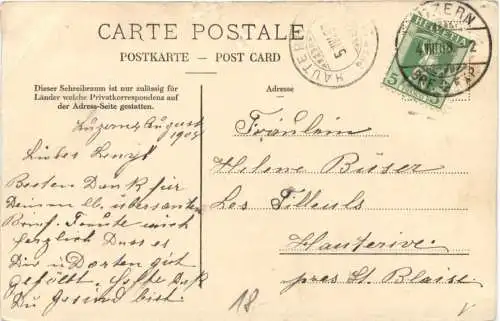 CARTE POSTALE
POSTKARTE - POST CARD
Dieser Schreibraum ist nur zulässig für
Länder welche Privatkorrespondenz auf
der Adress-Seite gestatten.
Adresse
LUZERN
HAUTERI
HELVETIA
5
Luzern 4 August
1908
Liebes
Besten Dank für
Deinen lb. übersandten
Brief. Freute mich
herzlich dass es
Dir u Dorten gut
gefällt. Hoffe dass
Du gesund bist.
Fräulein
Helene Büser
Les Tilleuls
Hauterive.
près St. Blaise
18-